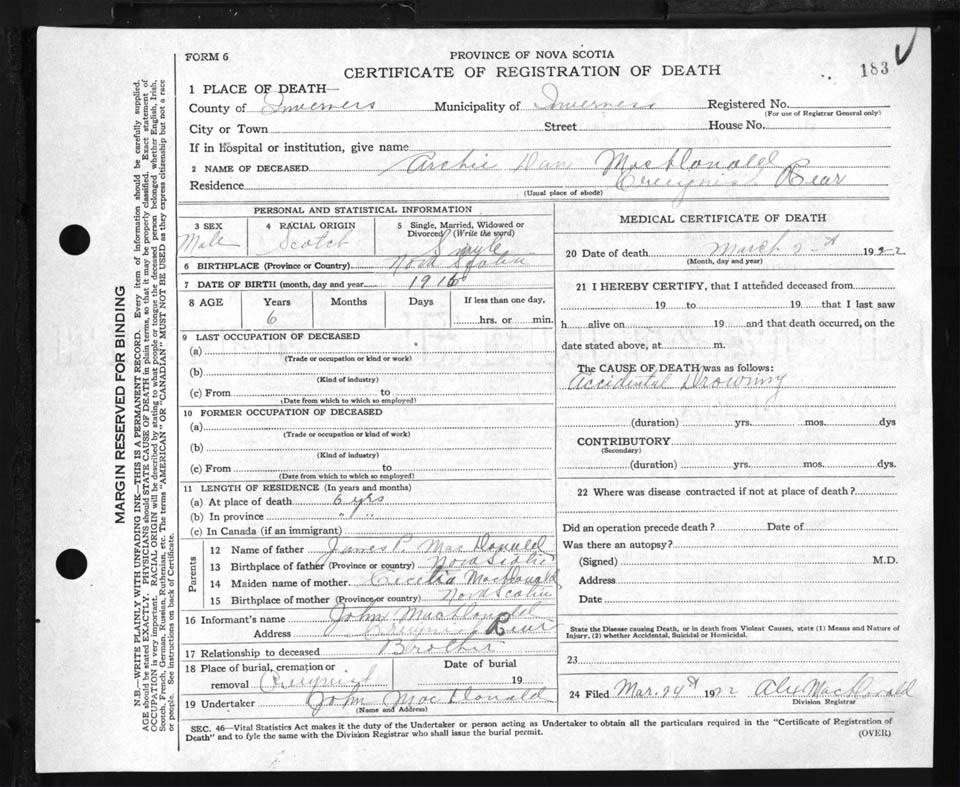 FORM 6
PROVINCE OF NOVA SCOTIA
CERTIFICATE OF REGISTRATION OF DEATH
183
1 PLACE OF DEATH—
County of Inverness Municipality of Inverness Registered No.
(For use of Registrar General only)
City or Town Street House No.
If in hospital or institution, give name
2 NAME OF DECEASED Archie Dan MacDonald
Residence Rear
(Usual place of abode)
PERSONAL AND STATISTICAL INFORMATION
3 SEX 4 RACIAL ORIGIN 5 Single, Married, Widowed or Divorced (Write the word)
Male Scotch Single
6 BIRTHPLACE (Province or Country) Nova Scotia
7 DATE OF BIRTH (month, day and year) 1916
8 AGE Years Months Days If less than one day,
6 hrs. or min.
9 LAST OCCUPATION OF DECEASED
(a)
(Trade or occupation or kind or work)
(b)
(Kind of industry)
(c) From to
(Date from which to which so employed)
10 FORMER OCCUPATION OF DECEASED
(a)
(Trade or occupation or kind of work)
(b)
(Kind of industry)
(c) From to
(Date from which to which so employed)
11 LENGTH OF RESIDENCE (In years and months)
(a) At place of death 6 yrs
(b) In province " "
(c) In Canada (if an immigrant)
Parents
12 Name of father James P. MacDonald
13 Birthplace of father (Province or country) Nova Scotia
14 Maiden name of mother Cecelia MacDonald
15 Birthplace of mother (Province or country) Nova Scotia
16 Informant's name John MacDonald
Address Rear
17 Relationship to deceased Brother
18 Place of burial, cremation or removal Date of burial 19
19 Undertaker John MacDonald
(Name and Address)
MEDICAL CERTIFICATE OF DEATH
20 Date of death March 2nd 1922
(Month, day and year)
21 I HEREBY CERTIFY, that I attended deceased from
19 to 19 that I last saw
h alive on 19 and that death occurred, on the
date stated above, at m.
The CAUSE OF DEATH was as follows:
Accidental Drowning
(duration) yrs. mos. dys
CONTRIBUTORY
(Secondary)
(duration) yrs. mos. dys.
22 Where was disease contracted if not at place of death?
Did an operation precede death? Date of
Was there an autopsy?
(Signed) M.D.
Address
Date
State the Disease causing Death, or in death from Violent Causes, state (1) Means and Nature of
Injury, (2) whether Accidental, Suicidal or Homicidal.
23
24 Filed Mar. 24th 1922 Alex MacDonald
Division Registrar
SEC. 46—Vital Statistics Act makes it the duty of the Undertaker or person acting as Undertaker to obtain all the particulars required in the "Certificate of Registration of
Death" and to fyle the same with the Division Registrar who shall issue the burial permit.
(OVER)
MARGIN RESERVED FOR BINDING
N.B.—WRITE PLAINLY WITH UNFADING INK—THIS IS A PERMANENT RECORD. Every item of information should be carefully supplied.
AGE should be stated EXACTLY. PHYSICIANS should STATE CAUSE OF DEATH in plain terms, so that it may be properly classified. Exact statement of
OCCUPATION is very important. RACIAL ORIGIN will be described by stating to what people or tongue the deceased person belonged whether English, Irish,
Scotch, French, German, Russian, Ruthenian, etc. The terms "AMERICAN" OR "CANADIAN" MUST NOT BE USED as they express citizenship but not a race
or people. See instructions on back of Certificate.